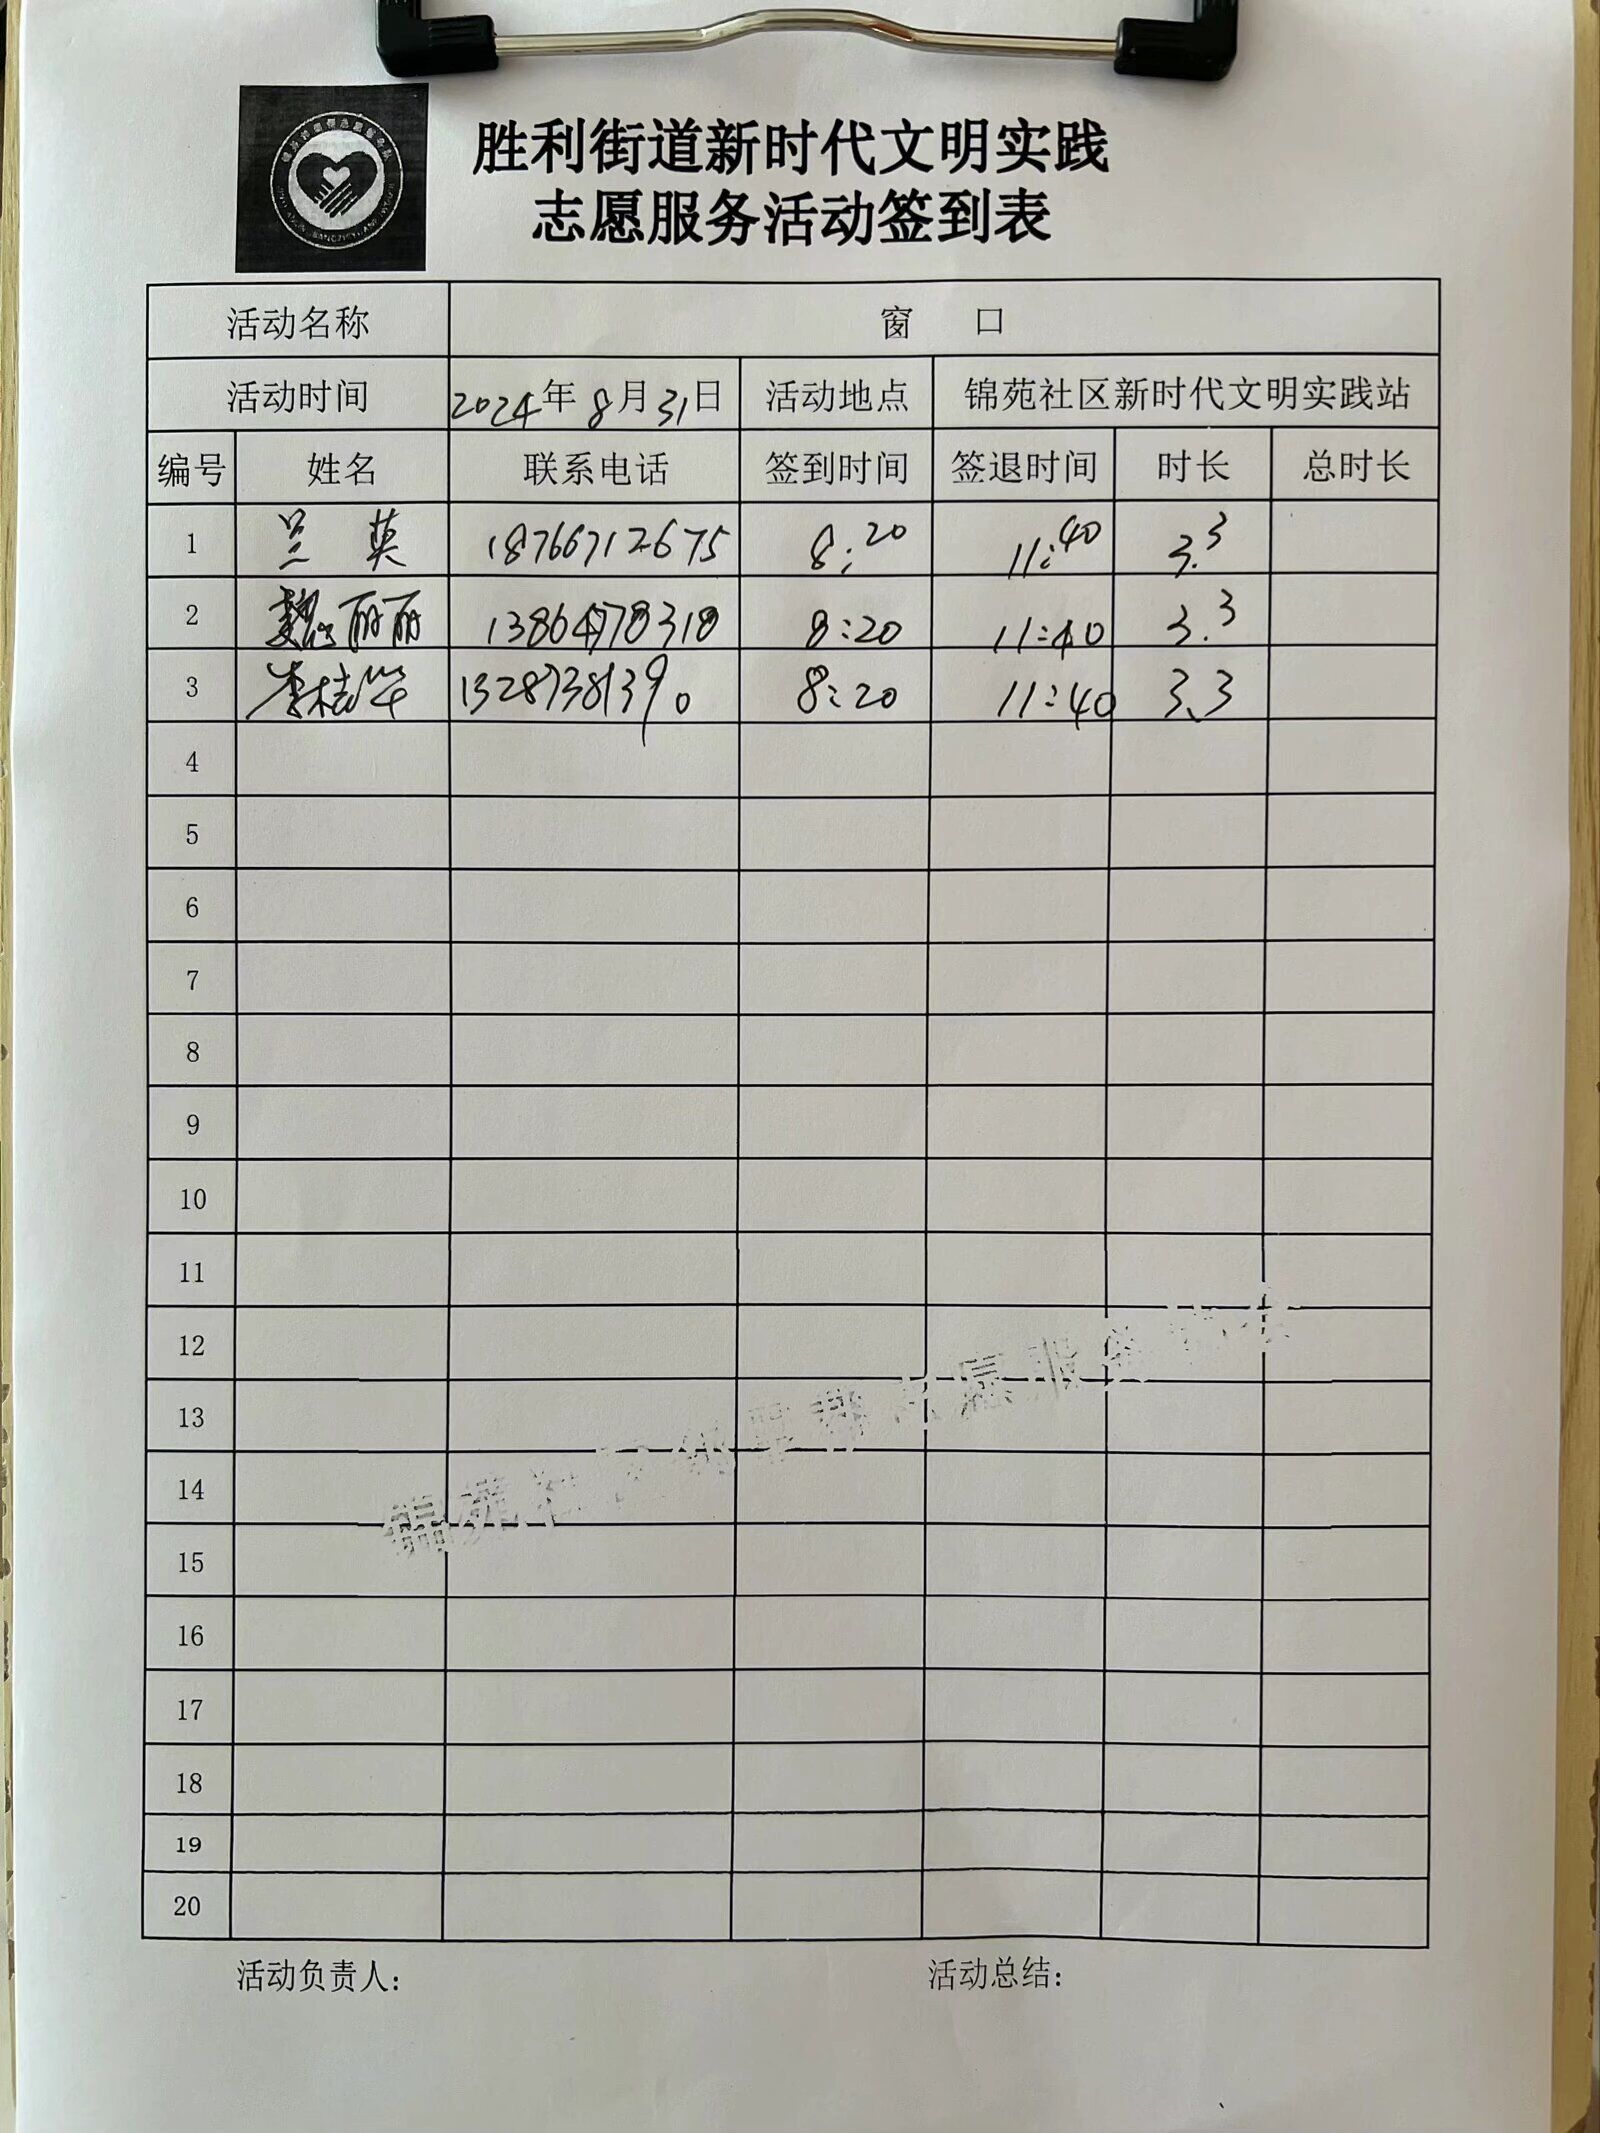 胜利街道新时代文明实践
志愿服务活动签到表
活动名称 窗 口
活动时间 2024年8月31日 活动地点 锦苑社区新时代文明实践站
编号 姓名 联系电话 签到时间 签退时间 时长 总时长
1 兰英 18766712675 8:20 11:40 3.3
2 魏丽丽 13864778318 8:20 11:40 3.3
3 李桂华 13287381390 8:20 11:40 3.3
4
5
6
7
8
9
10
11
12
13
14
15
16
17
18
19
20
活动负责人: 活动总结: